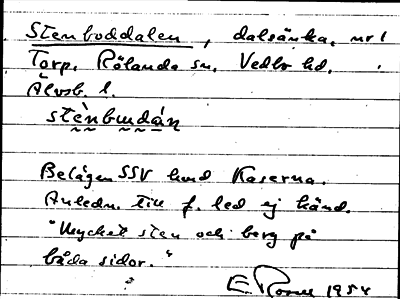 Stenboddalen, dalsänka, nr 1
Torp, Rölanda sn, Vedbo hd.
Älvsb. l.
stènbụdán
Belägen SSV hund Kaserna.
Anledn. till f. led ej känd.
"Mycket sten och berg på
båda sidor."
E. 1954